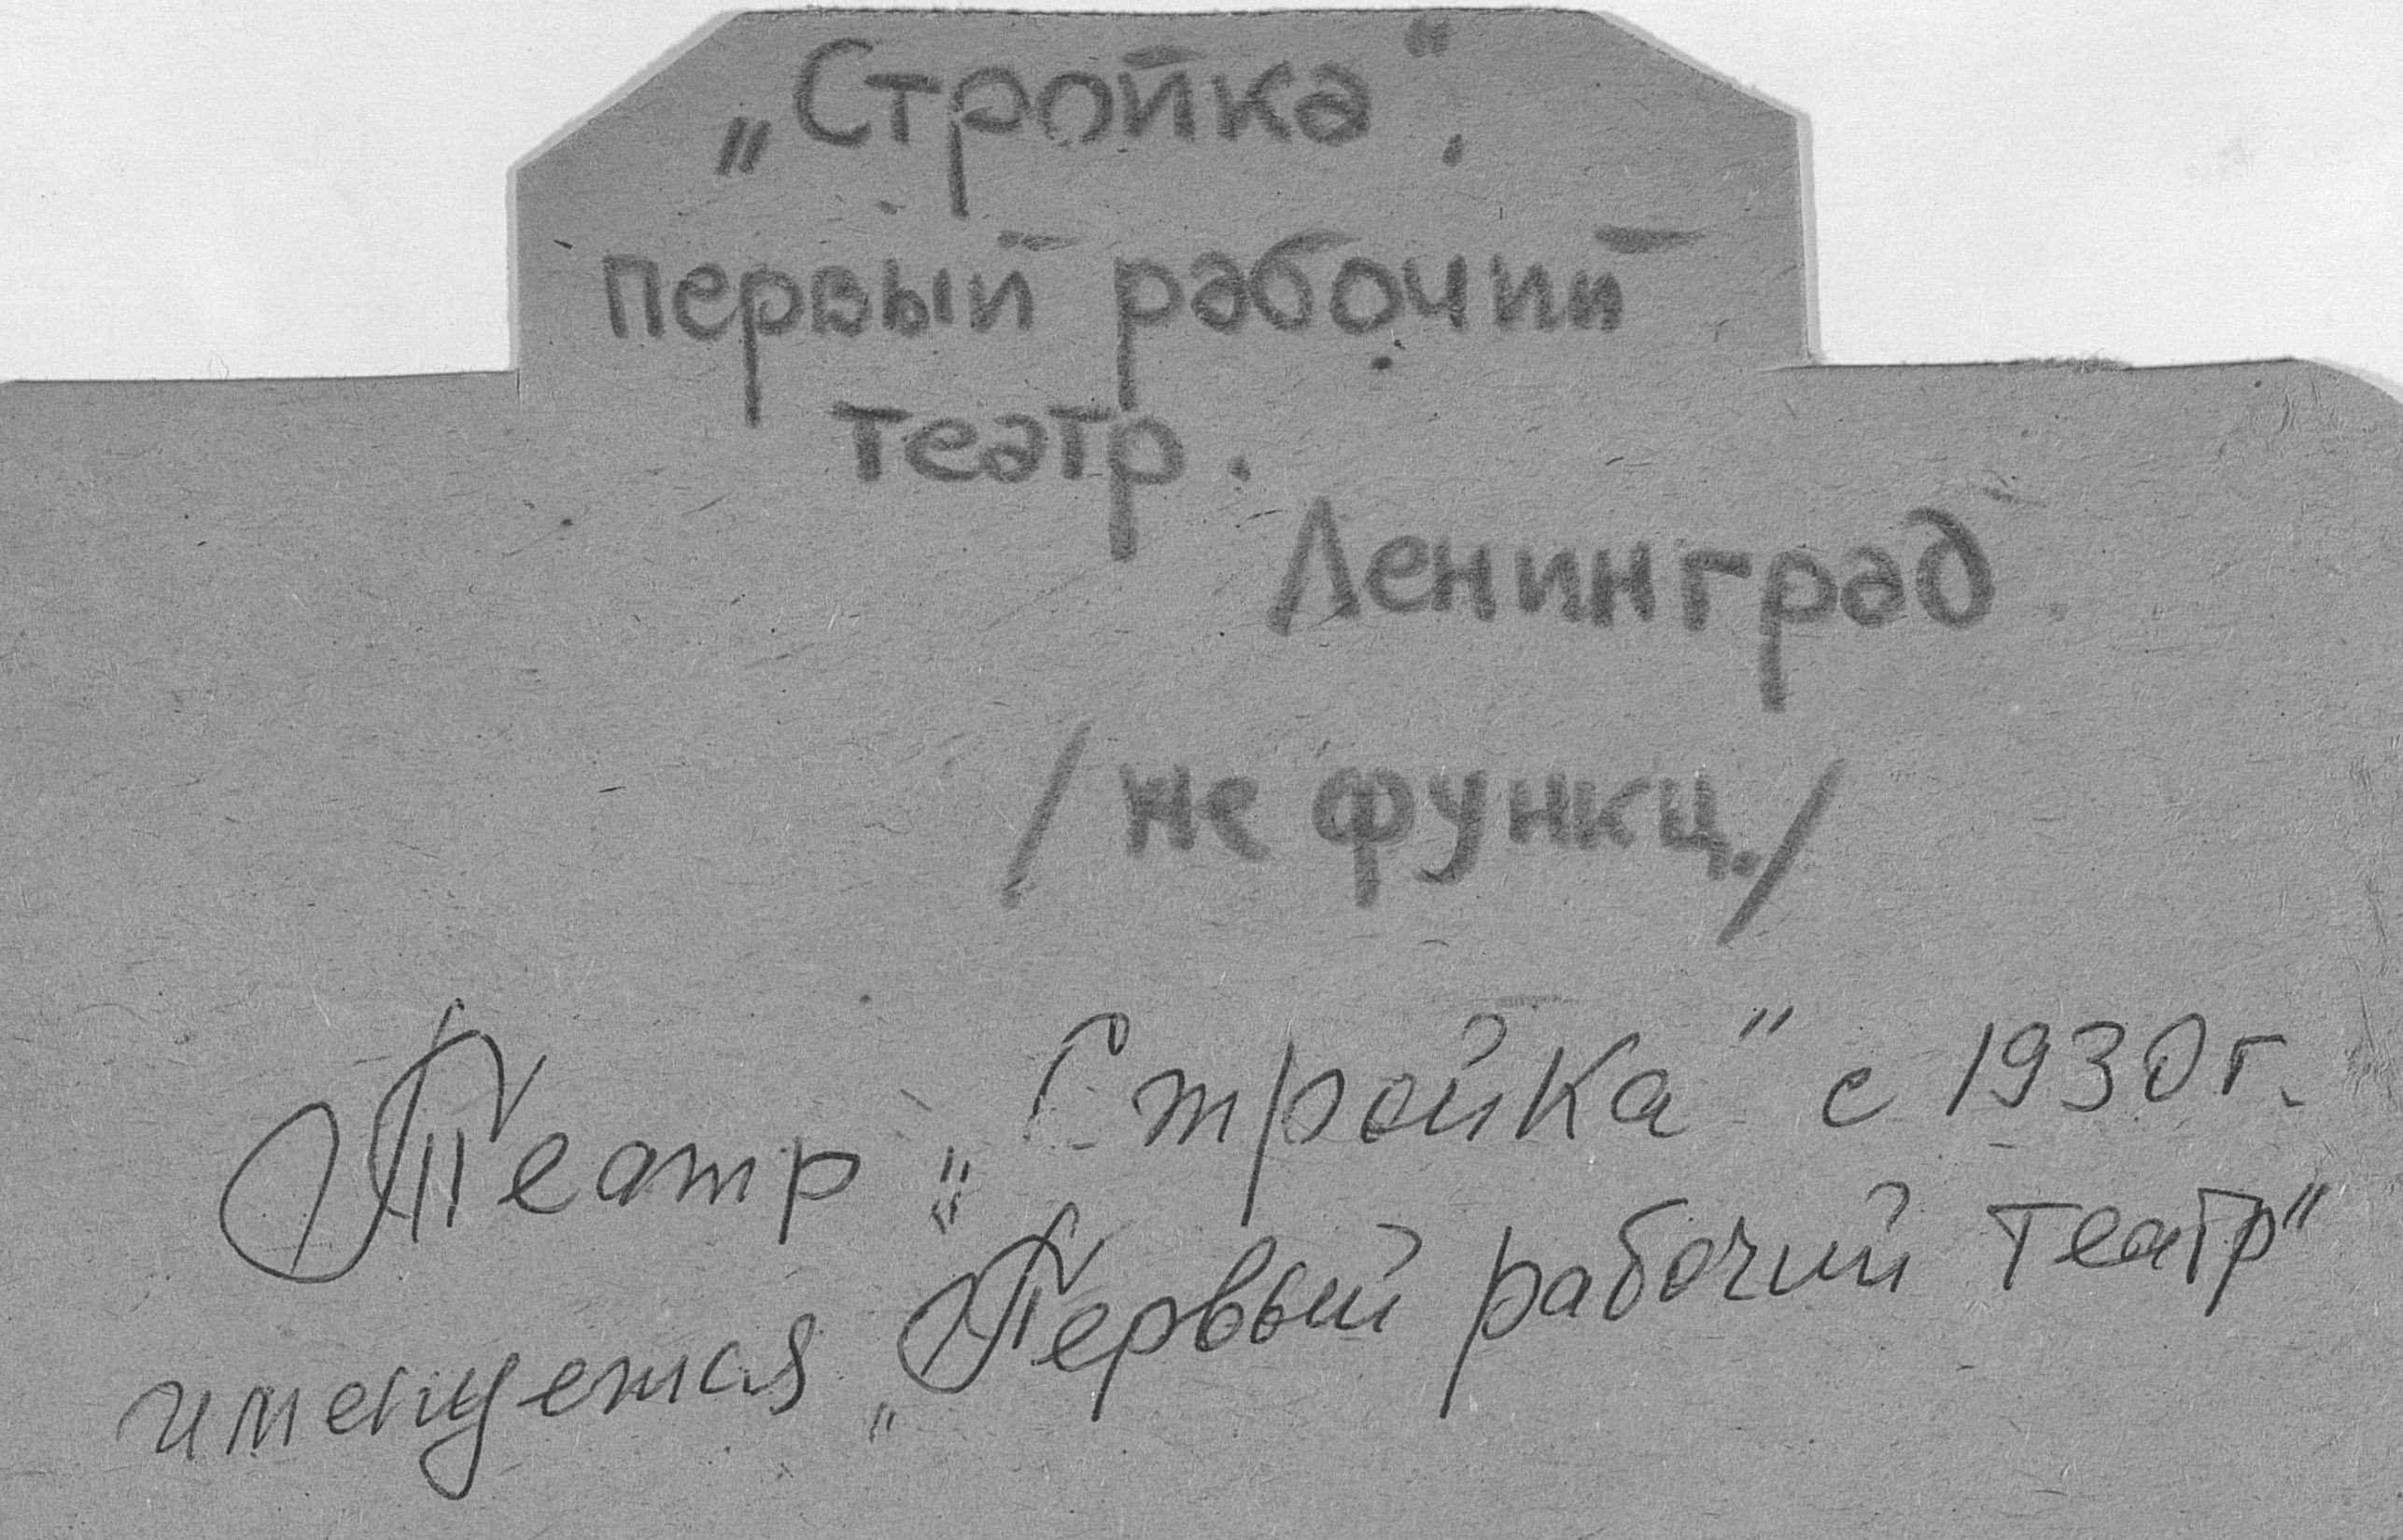 „Стройка“.
первый рабочий
театр.
Ленинград
/не функц./
Театр „Стройка“ с 1930 г.
именуется „Первый рабочий театр“